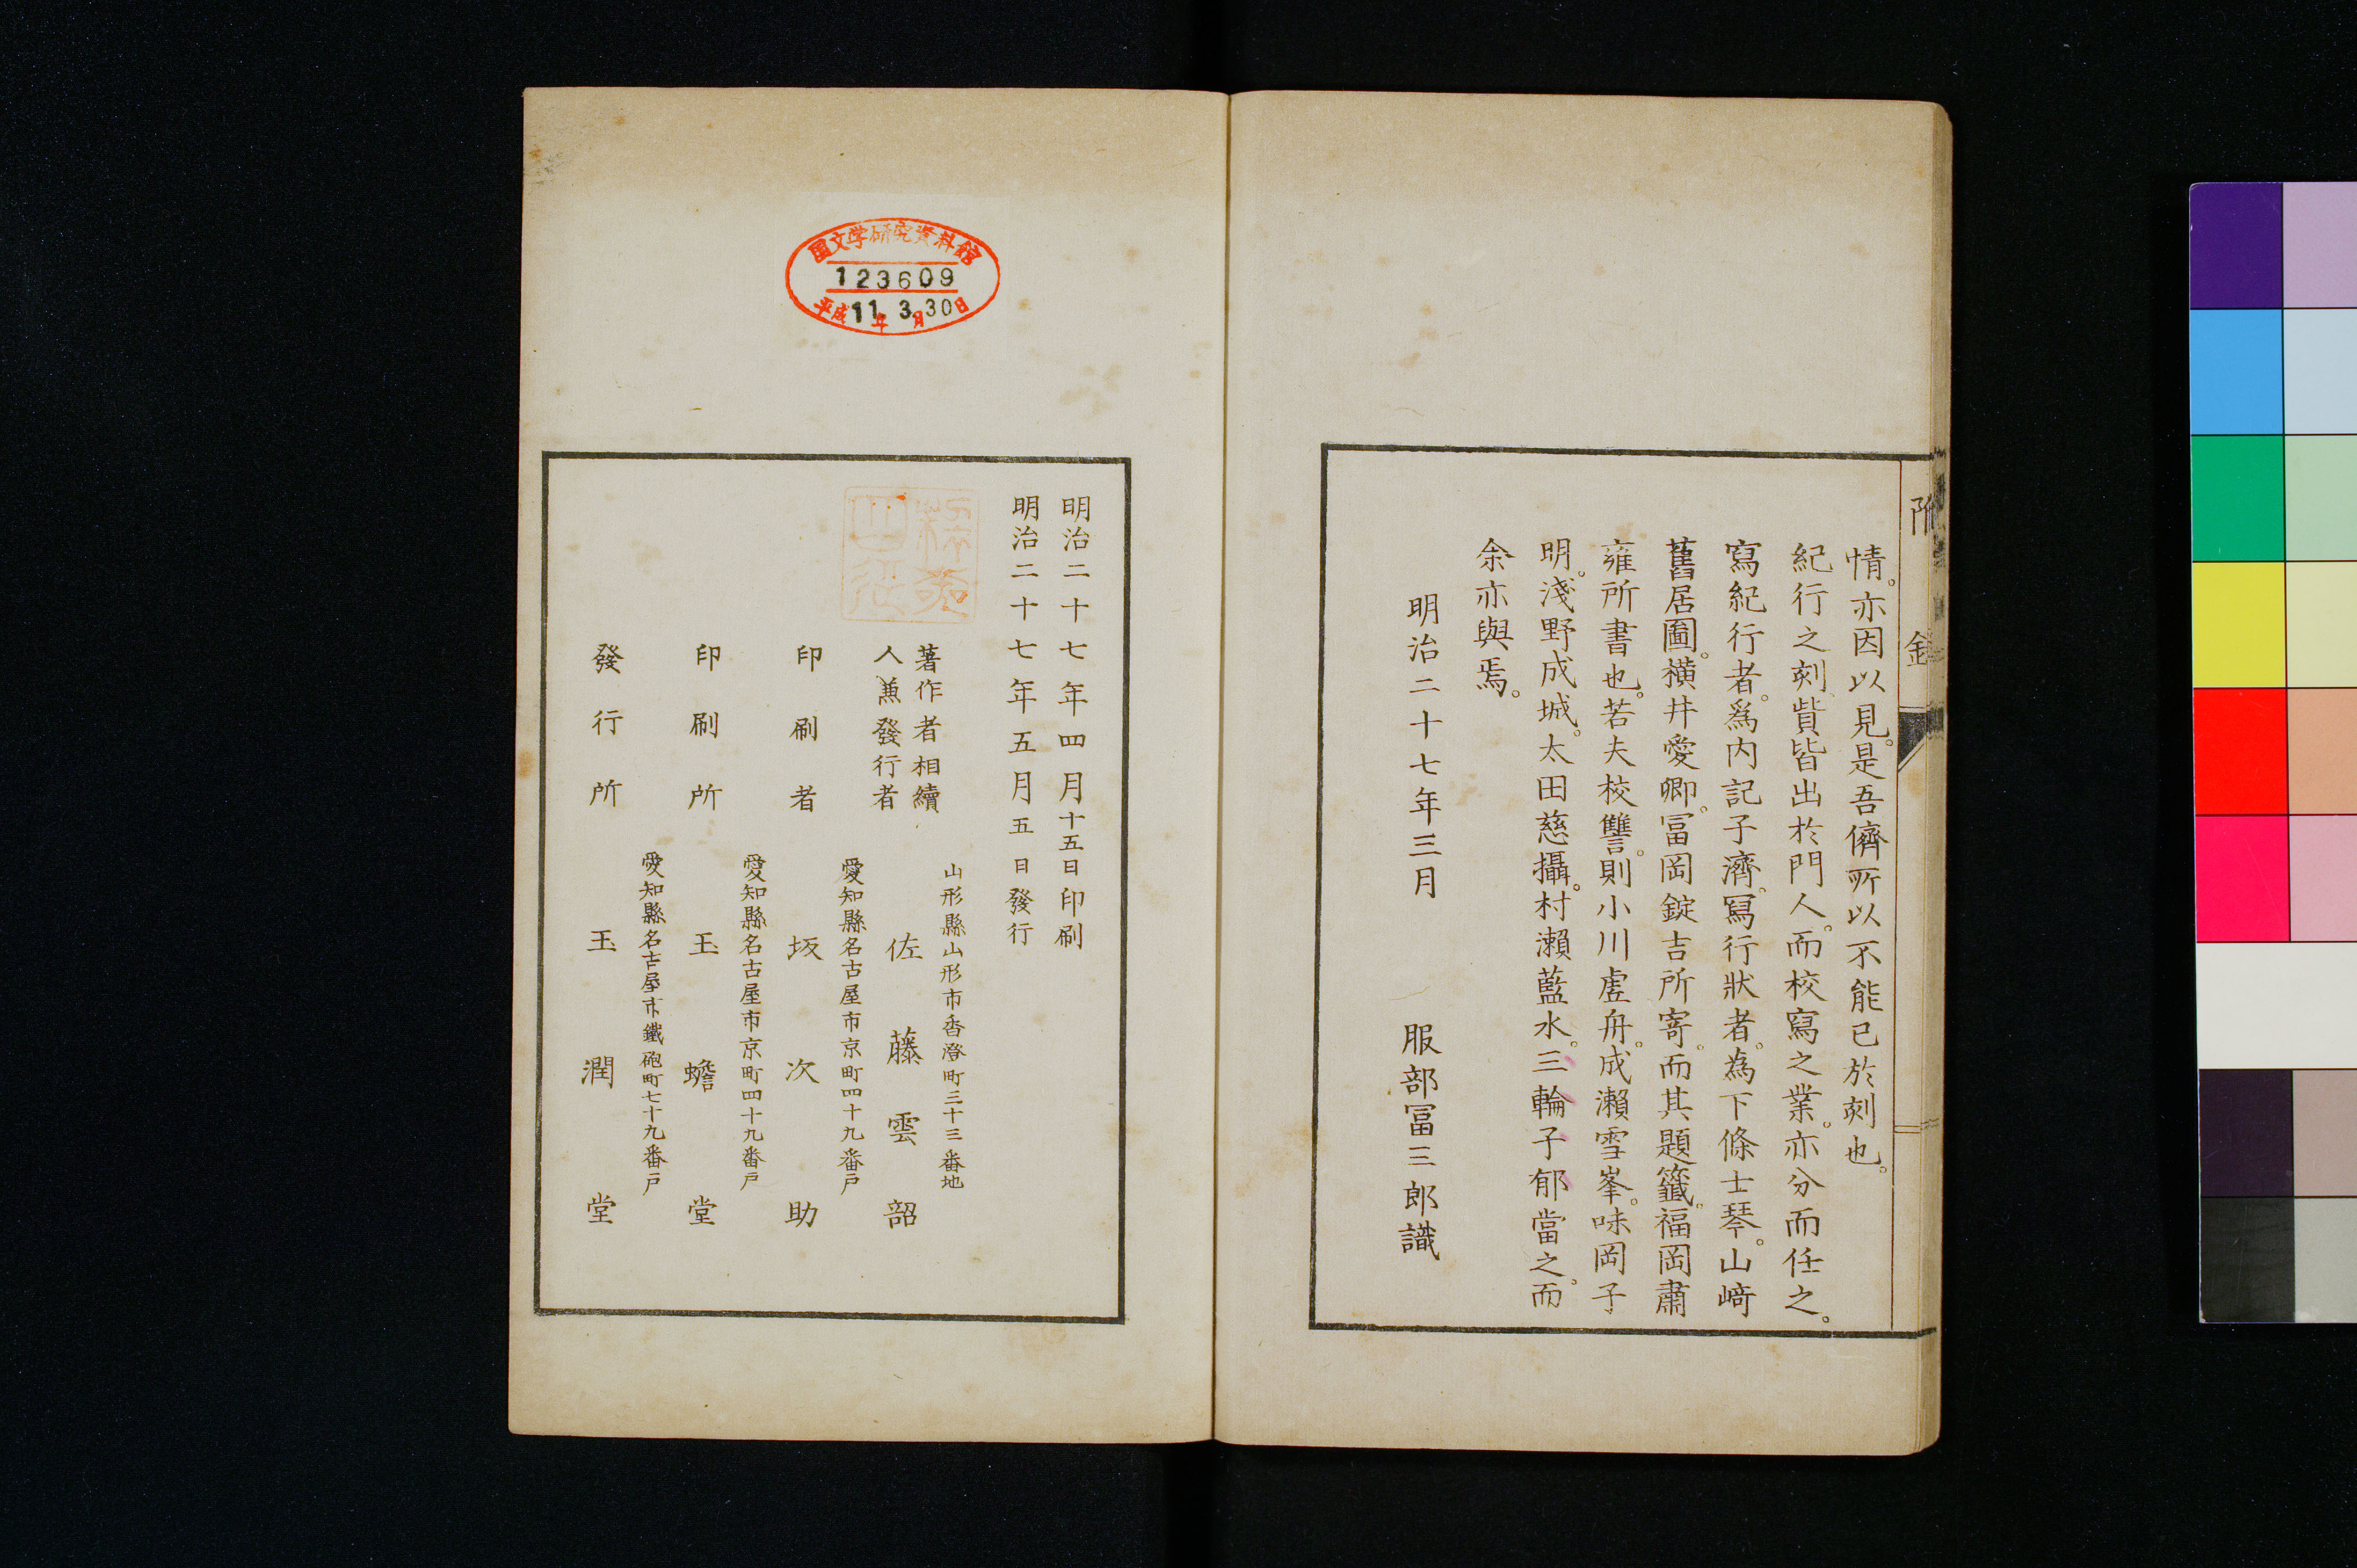 附錄
情。亦因以見。是吾儕所以不能已於刻也。
紀行之刻貲皆出於門人。而校寫之業。亦分而任之。
寫紀行者。爲内記子濟。冩行狀者。為下條士琴。山﨑
舊居圖。横井愛卿。冨岡錠吉所寄。而其題籤。福岡肅
雍所書也。若夫校讐。則小川虗舟。成瀬雪峯。味岡子
明。淺野成城。太田慈攝。村瀬藍水。三輪子郁當之。而
余亦與焉。
明治二十七年三月
服部冨三郎識
国文学研究資料館
123609
平成11年3月30日
明治二十七年四月十五日印刷
明治二十七年五月五日發行
著作者相續
人兼發行者
山形縣山形市香澄町三十三番地
佐藤雲韶
印刷者
愛知縣名古屋市京町四十九番戸
坂次助
印刷所
愛知縣名古屋市京町四十九番戸
玉蟾堂
發行所
愛知縣名古屋市鐵砲町七十九番戸
玉潤堂